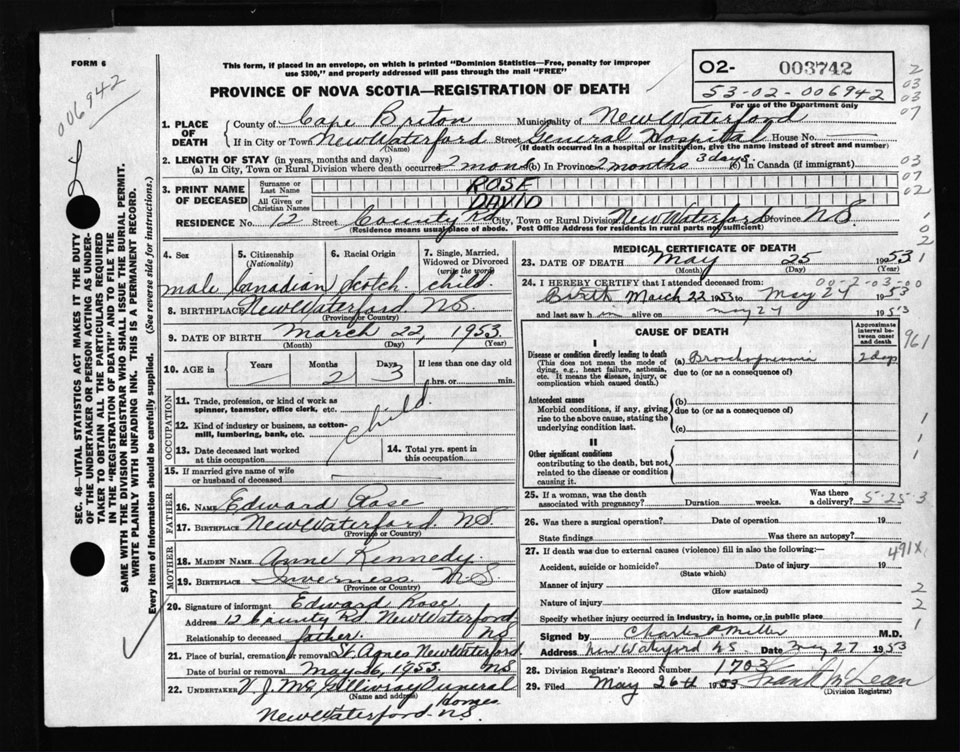 FORM 6
006942
This form, if placed in an envelope, on which is printed "Dominion Statistics—Free, penalty for improper
use $300," and properly addressed will pass through the mail "FREE"
02- 003742
53-02-006942
For use of the Department only
PROVINCE OF NOVA SCOTIA—REGISTRATION OF DEATH
1. PLACE OF DEATH
County of Cape Breton Municipality of New Waterford
If in City or Town New Waterford Street General Hospital House No. —
(Name) (If death occurred in a hospital or institution, give the name instead of street and number)
2. LENGTH OF STAY (in years, months and days)
(a) In City, Town or Rural Division where death occurred 2 mons (b) In Province 2 months 3 days. (c) In Canada (if immigrant)
3. PRINT NAME OF DECEASED
Surname or Last Name ROSE
All Given or Christian Names DAVID
RESIDENCE No. 12 Street County Rd City, Town or Rural Division New Waterford Province N.S.
(Residence means usual place of abode. Post Office Address for residents in rural parts not sufficient)
4. Sex male
5. Citizenship (Nationality) Canadian
6. Racial Origin Scotch
7. Single, Married, Widowed or Divorced (write the word) child.
8. BIRTHPLACE New Waterford N.S.
(Province or Country)
9. DATE OF BIRTH March 22, 1953
(Month) (Day) (Year)
10. AGE in Years — Months 2 Days 3 If less than one day old
hrs. or min.
OCCUPATION
11. Trade, profession, or kind of work as spinner, teamster, office clerk, etc.
12. Kind of industry or business, as cotton-mill, lumbering, bank, etc. child.
13. Date deceased last worked at this occupation
14. Total yrs. spent in this occupation
15. If married give name of wife or husband of deceased
FATHER
16. NAME Edward Rose
17. BIRTHPLACE New Waterford N.S.
(Province or Country)
MOTHER
18. MAIDEN NAME Anne Kennedy.
19. BIRTHPLACE Inverness N.S.
(Province or Country)
20. Signature of informant Edward Rose
Address 12 County Rd. New Waterford N.S.
Relationship to deceased father.
21. Place of burial, cremation or removal St. Agnes New Waterford N.S.
Date of burial or removal May 26, 1953.
22. UNDERTAKER V. J. McGillivray Funeral Homes
(Name and address)
New Waterford N.S.
MEDICAL CERTIFICATE OF DEATH
23. DATE OF DEATH May 25 1953
(Month) (Day) (Year)
24. I HEREBY CERTIFY that I attended deceased from:
00-2-03-00
Birth March 22 1953 to May 24 1953
and last saw him alive on May 24 1953
CAUSE OF DEATH
Approximate interval between onset and death
I
Disease or condition directly leading to death
(This does not mean the mode of dying, e.g., heart failure, asthenia, etc. It means the disease, injury, or complication which caused death.)
(a) Bronchopneumonia 2 days
due to (or as a consequence of)
Antecedent causes
Morbid conditions, if any, giving rise to the above cause, stating the underlying condition last.
(b)
due to (or as a consequence of)
(c)
II
Other significant conditions
contributing to the death, but not related to the disease or condition causing it.
25. If a woman, was the death associated with pregnancy? Duration weeks. Was there a delivery? 5-25-3
26. Was there a surgical operation? Date of operation 19
State findings Was there an autopsy?
27. If death was due to external causes (violence) fill in also the following:—
491X
Accident, suicide or homicide? Date of injury 19
(State which)
Manner of injury
(How sustained)
Nature of injury
Specify whether injury occurred in industry, in home, or in public place
Signed by Charles P Miller M.D.
Address New Waterford N.S. Date May 27 1953
28. Division Registrar's Record Number 1703
29. Filed May 26th 1953 Frank McLean
(Division Registrar)
SEC. 46—VITAL STATISTICS ACT MAKES IT THE DUTY
OF THE UNDERTAKER OR PERSON ACTING AS UNDER-
TAKER TO OBTAIN ALL THE PARTICULARS REQUIRED
IN THE "REGISTRATION OF DEATH" AND TO FILE THE
SAME WITH THE DIVISION REGISTRAR WHO SHALL ISSUE THE BURIAL PERMIT.
WRITE PLAINLY WITH UNFADING INK. THIS IS A PERMANENT RECORD.
Every item of Information should be carefully supplied. (See reverse side for instructions.)
2
03
03
07
03
07
02
1
02
1
961
1
1
1
2
2
1